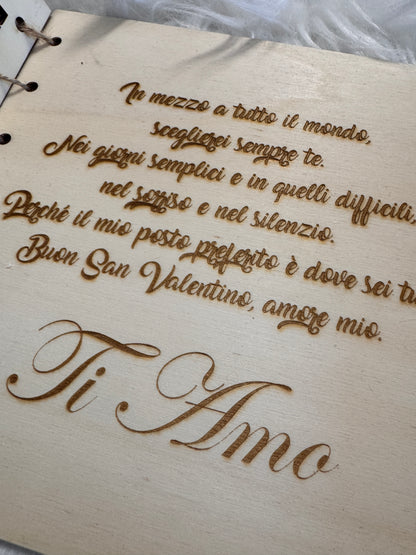 In mezzo a tutto il mondo,
sceglierei sempre te.
Nei giorni semplici e in quelli difficili,
nel sorriso e nel silenzio.
Perché il mio posto preferito è dove sei tu
Buon San Valentino, amore mio.
Ti Amo